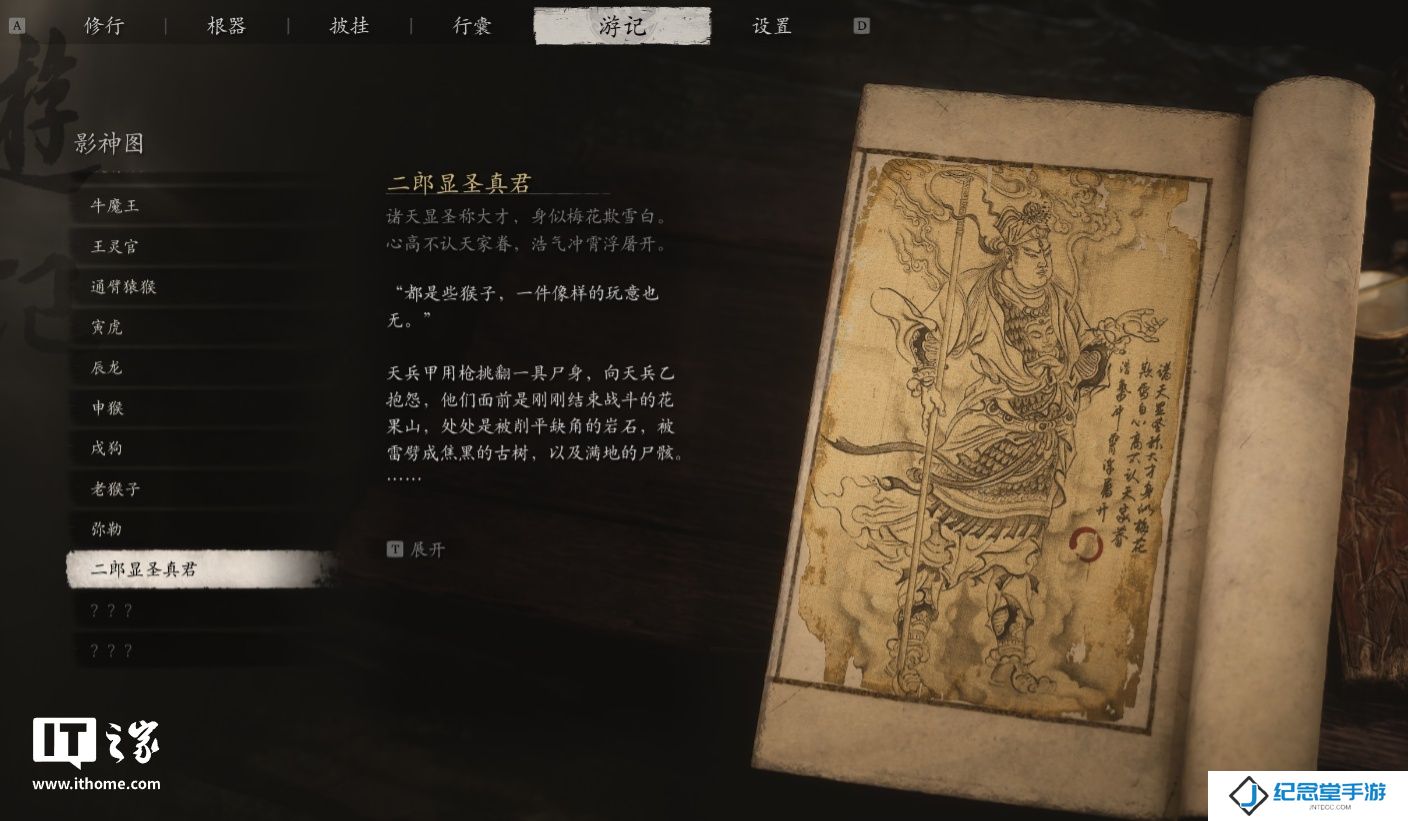 A
修行
根器
披挂
行囊
游记
设置
D
影神图
牛魔王
王灵官
通臂猿猴
寅虎
辰龙
申猴
戌狗
老猴子
弥勒
二郎显圣真君
？？？
？？？
二郎显圣真君
诸天显圣称大才，身似梅花欺雪白。
心高不认天家眷，浩气冲霄浮屠开。
“都是些猴子，一件像样的玩意也
无。”
天兵甲用枪挑翻一具尸身，向天兵乙
抱怨，他们面前是刚刚结束战斗的花
果山，处处是被削平缺角的岩石，被
雷劈成焦黑的古树，以及满地的尸骸。
……
T 展开
诸天显圣称大才身似梅花
欺雪白心高不认天家眷
浩气冲霄浮屠开
IT之家
www.ithome.com
纪念堂手游
JNTDCC.COM